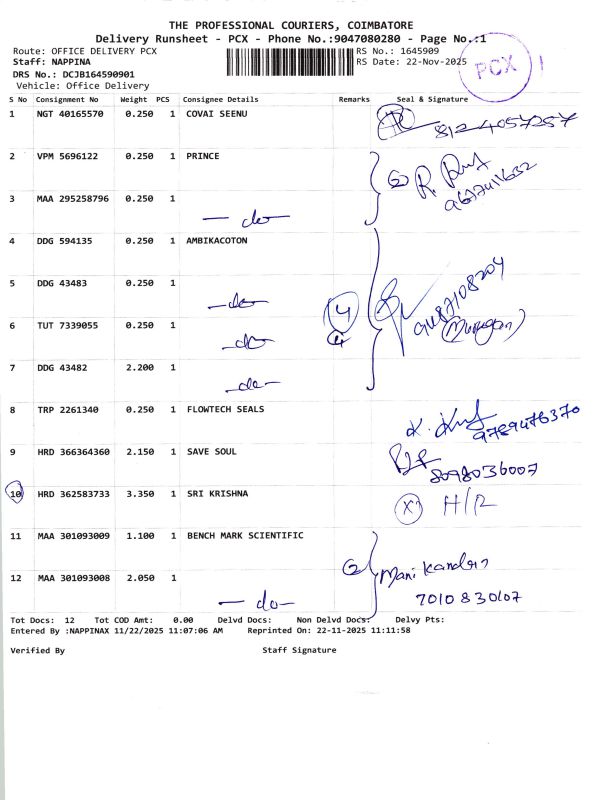 THE PROFESSIONAL COURIERS, COIMBATORE
Delivery Runsheet - PCX - Phone No.:9047080280 - Page No.:1
Route: OFFICE DELIVERY PCX
RS No.: 1645909
Staff: NAPPINA
RS Date: 22-Nov-2025
PCX
DRS No.: DCJB164590901
Vehicle: Office Delivery
S No Consignment No Weight PCS Consignee Details Remarks Seal & Signature
1 NGT 40165570 0.250 1 COVAI SEENU 8124057257
2 VPM 5696122 0.250 1 PRINCE
3 MAA 295258796 0.250 1 — do —
4 DDG 594135 0.250 1 AMBIKACOTON
5 DDG 43483 0.250 1 — do —
6 TUT 7339055 0.250 1 — do — 4 (Murugan)
7 DDG 43482 2.200 1 — do —
8 TRP 2261340 0.250 1 FLOWTECH SEALS 9789476370
9 HRD 366364360 2.150 1 SAVE SOUL 8098036007
10 HRD 362583733 3.350 1 SRI KRISHNA X H/R
11 MAA 301093009 1.100 1 BENCH MARK SCIENTIFIC 2 Mani kandan
12 MAA 301093008 2.050 1 — do — 7010830107
Tot Docs: 12 Tot COD Amt: 0.00 Delvd Docs: Non Delvd Docs: Delvy Pts:
Entered By :NAPPINAX 11/22/2025 11:07:06 AM Reprinted On: 22-11-2025 11:11:58
Verified By Staff Signature